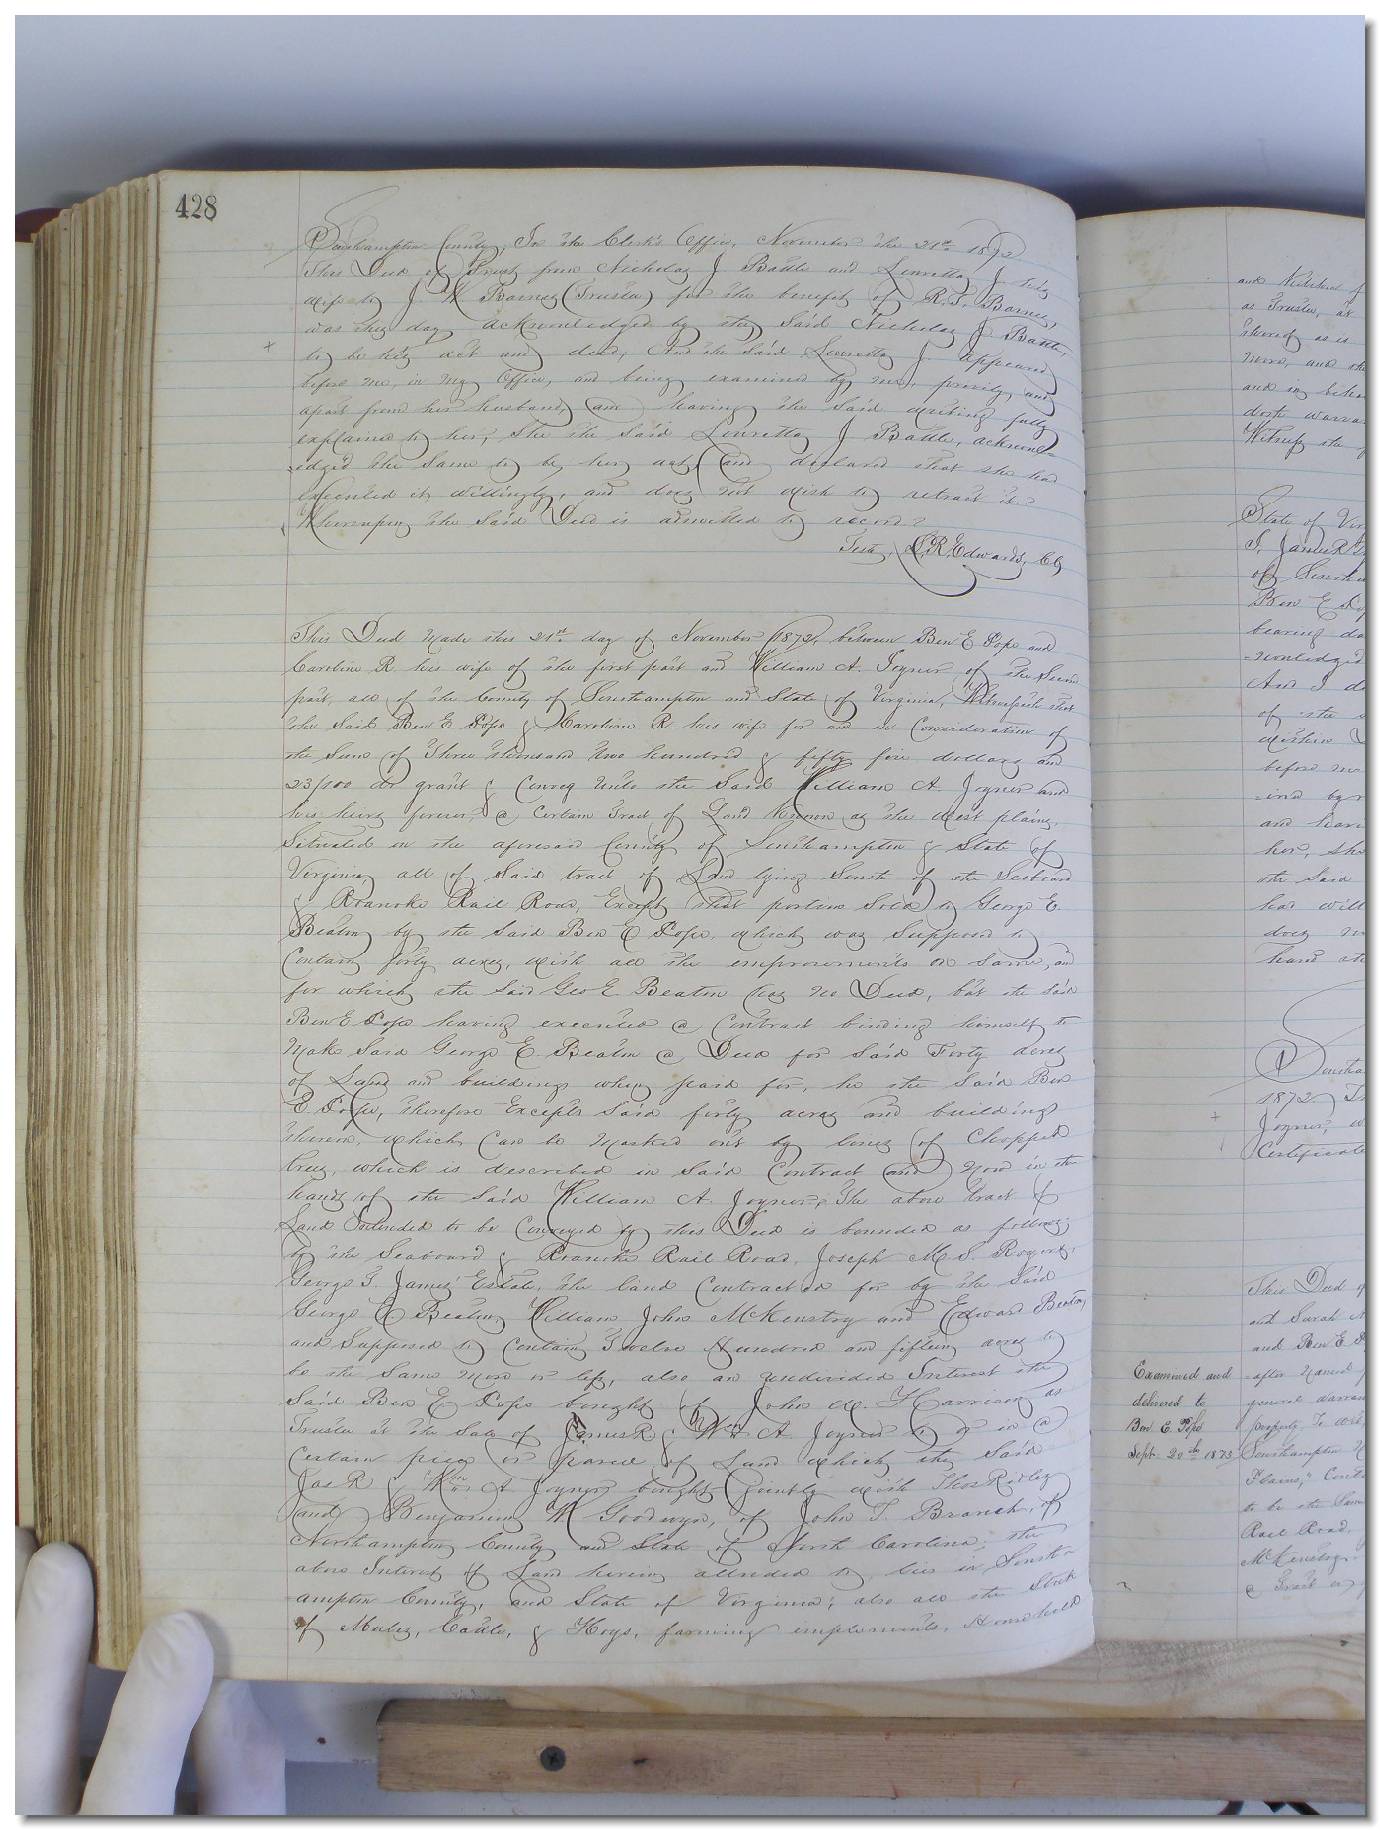 428
Southampton County, In the Clerk's Office, November the 21st 1872
This Deed of Trust from Nicholas J Battle and Louretta J his
wife to J W Barnes (Trustee) for the benefit of R. T. Barnes,
was this day acknowledged by the said Nicholas J Battle,
to be his act and deed, And the said Louretta J. appeared
before me, in my Office, and being examined by me, privily and
apart from her husband, and having the said writing fully
explained to her, She the said Louretta J Battle, acknowl=
edged the same to be her act, and declared that she had
executed it willingly, and does not wish to retract it.
Whereupon the said Deed is admitted to record.
Teste, L. R. Edwards, Clk
This Deed Made this 21st day of November 1872, between Ben E Pope and
Caroline R. his wife of the first part and William A. Joyner, of the Second
part, all of the County of Southampton and State of Virginia, Witnesseth that
the Said Ben E Pope & Caroline R his wife for and in Consideration of
the Sum of Three thousand two hundred & fifty five dollars and
23/100 do grant & Convey unto the Said William A. Joyner and
his heirs forever, a Certain Tract of Land Known as the West plains,
Situated in the aforesaid County of Southampton & State of
Virginia, all of Said tract of Land lying South of the Seaboard
& Roanoke Rail Road, Except that portion Sold to George E.
Beaton by the Said Ben E Pope, which was Supposed to
Contain forty acres, with all the improvements on Same, and
for which the Said Geo E. Beaton has no Deed, but the said
Ben E Pope having executed a Contract binding himself to
Make Said George E. Beaton a Deed for Said Forty acres
of Land and buildings when paid for, he the Said Ben
E Pope, therefore Excepts Said forty acres and buildings
thereon, which can be marked out by lines of Chopped
trees, which is described in Said Contract and Now in the
hands of the Said William A. Joyner, The above tract of
Land intended to be Conveyed by this Deed is bounded as follows;
by the Seaboard & Roanoke Rail Road, Joseph M. S. Rogers,
George T. James' Estate, the land Contracted for by the Said
George E Beaton, William John McKenstry and Edward Beaton,
and Supposed to Contain Twelve Hundred and fifteen acres to
be the Same More or less, also an undivided Interest the
Said Ben E Pope bought of John W. Harrison as
Trustee at the Sale of James R & Wm A Joyner to or in a
Certain piece or parcel of Land which the Said
Jas R & Wm A Joyner bought jointly with Thos Ridley
and Benjamin W Goodwyn, of John T. Branch, of
Northampton County and State of North Carolina; the
above Interest of Land herein alluded to, lies in South=
ampton County, and State of Virginia; also all the Stock
of Mules, Cattle, & Hogs, farming implements, Household
and
as Trustee, as
and in
Witness the
State of Vir
I, James R
of South
Ben E Po
bearing da
=nowledged
And I d
of the
within
before me
=ined by
and havi
her, she
the said
had will
does no
hand th
1872
Joyner, w
Certificate
This Deed
and Sarah
and Ben E P
Examined and
delivered to
Ben E. Pope
Sept. 20th 1873
=after Named
general warra
property, To wit
Southampton
Plains," Cont
to be the Same
Rail Road,
McKenstry
a Tract